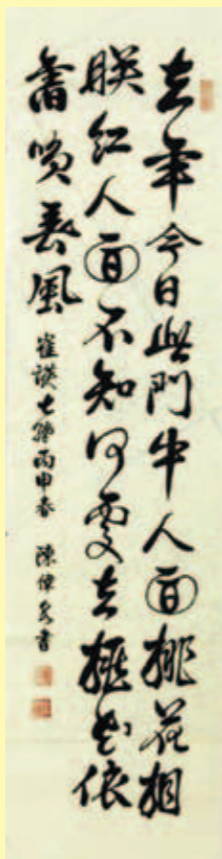 去年今日此門中人面桃花相
映紅人面不知何處去桃花依
舊笑春風 崔護七絕丙申春 陳偉書